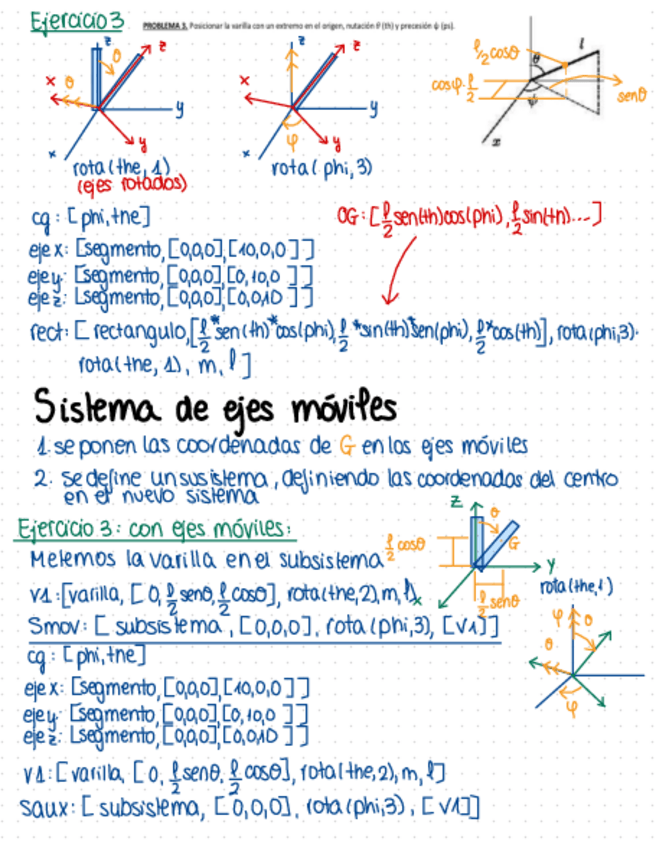 Ejercicio 3
PROBLEMA 3. Posicionar la varilla con un extremo en el origen, nutación θ (th) y precesión ψ (ps).
z z θ x θ y y x
rota(the, 1)
(ejes rotados)
z z x y y φ x
rota(phi, 3)
l/2 cosθ l θ
cosφ·l/2 ψ senθ
x
cg: [phi, tne]
OG: [l/2 sen(th)cos(phi), l/2 sin(tn)...]
eje x: [segmento, [0,0,0], [10,0,0]]
eje y: [segmento, [0,0,0], [0,10,0]]
eje z: [segmento, [0,0,0], [0,0,10]]
rect: [rectangulo, [l/2*sen(th)*cos(phi), l/2*sin(th)*sen(phi), l/2*cos(th)], rota(phi,3)·
rota(tne, 1), m, l]
Sistema de ejes móviles
1. se ponen las coordenadas de G en los ejes móviles
2. se define un susistema, definiendo las coordenadas del centro
en el nuevo sistema
Ejercicio 3: con ejes móviles:
Metemos la varilla en el subsistema
z θ G l/2 cosθ y x l/2 senθ
v1: [varilla, [0, l/2 senθ, l/2 cosθ], rota(the,2), m, l]
rota(the, 1)
Smov: [subsistema, [0,0,0], rota(phi,3), [v1]]
φ θ θ φ
cg: [phi, tne]
eje x: [segmento, [0,0,0], [10,0,0]]
eje y: [segmento, [0,0,0], [0,10,0]]
eje z: [segmento, [0,0,0], [0,0,10]]
v1: [varilla, [0, l/2 senθ, l/2 cosθ], rota(the,2), m, l]
saux: [subsistema, [0,0,0], rota(phi,3), [v1]]